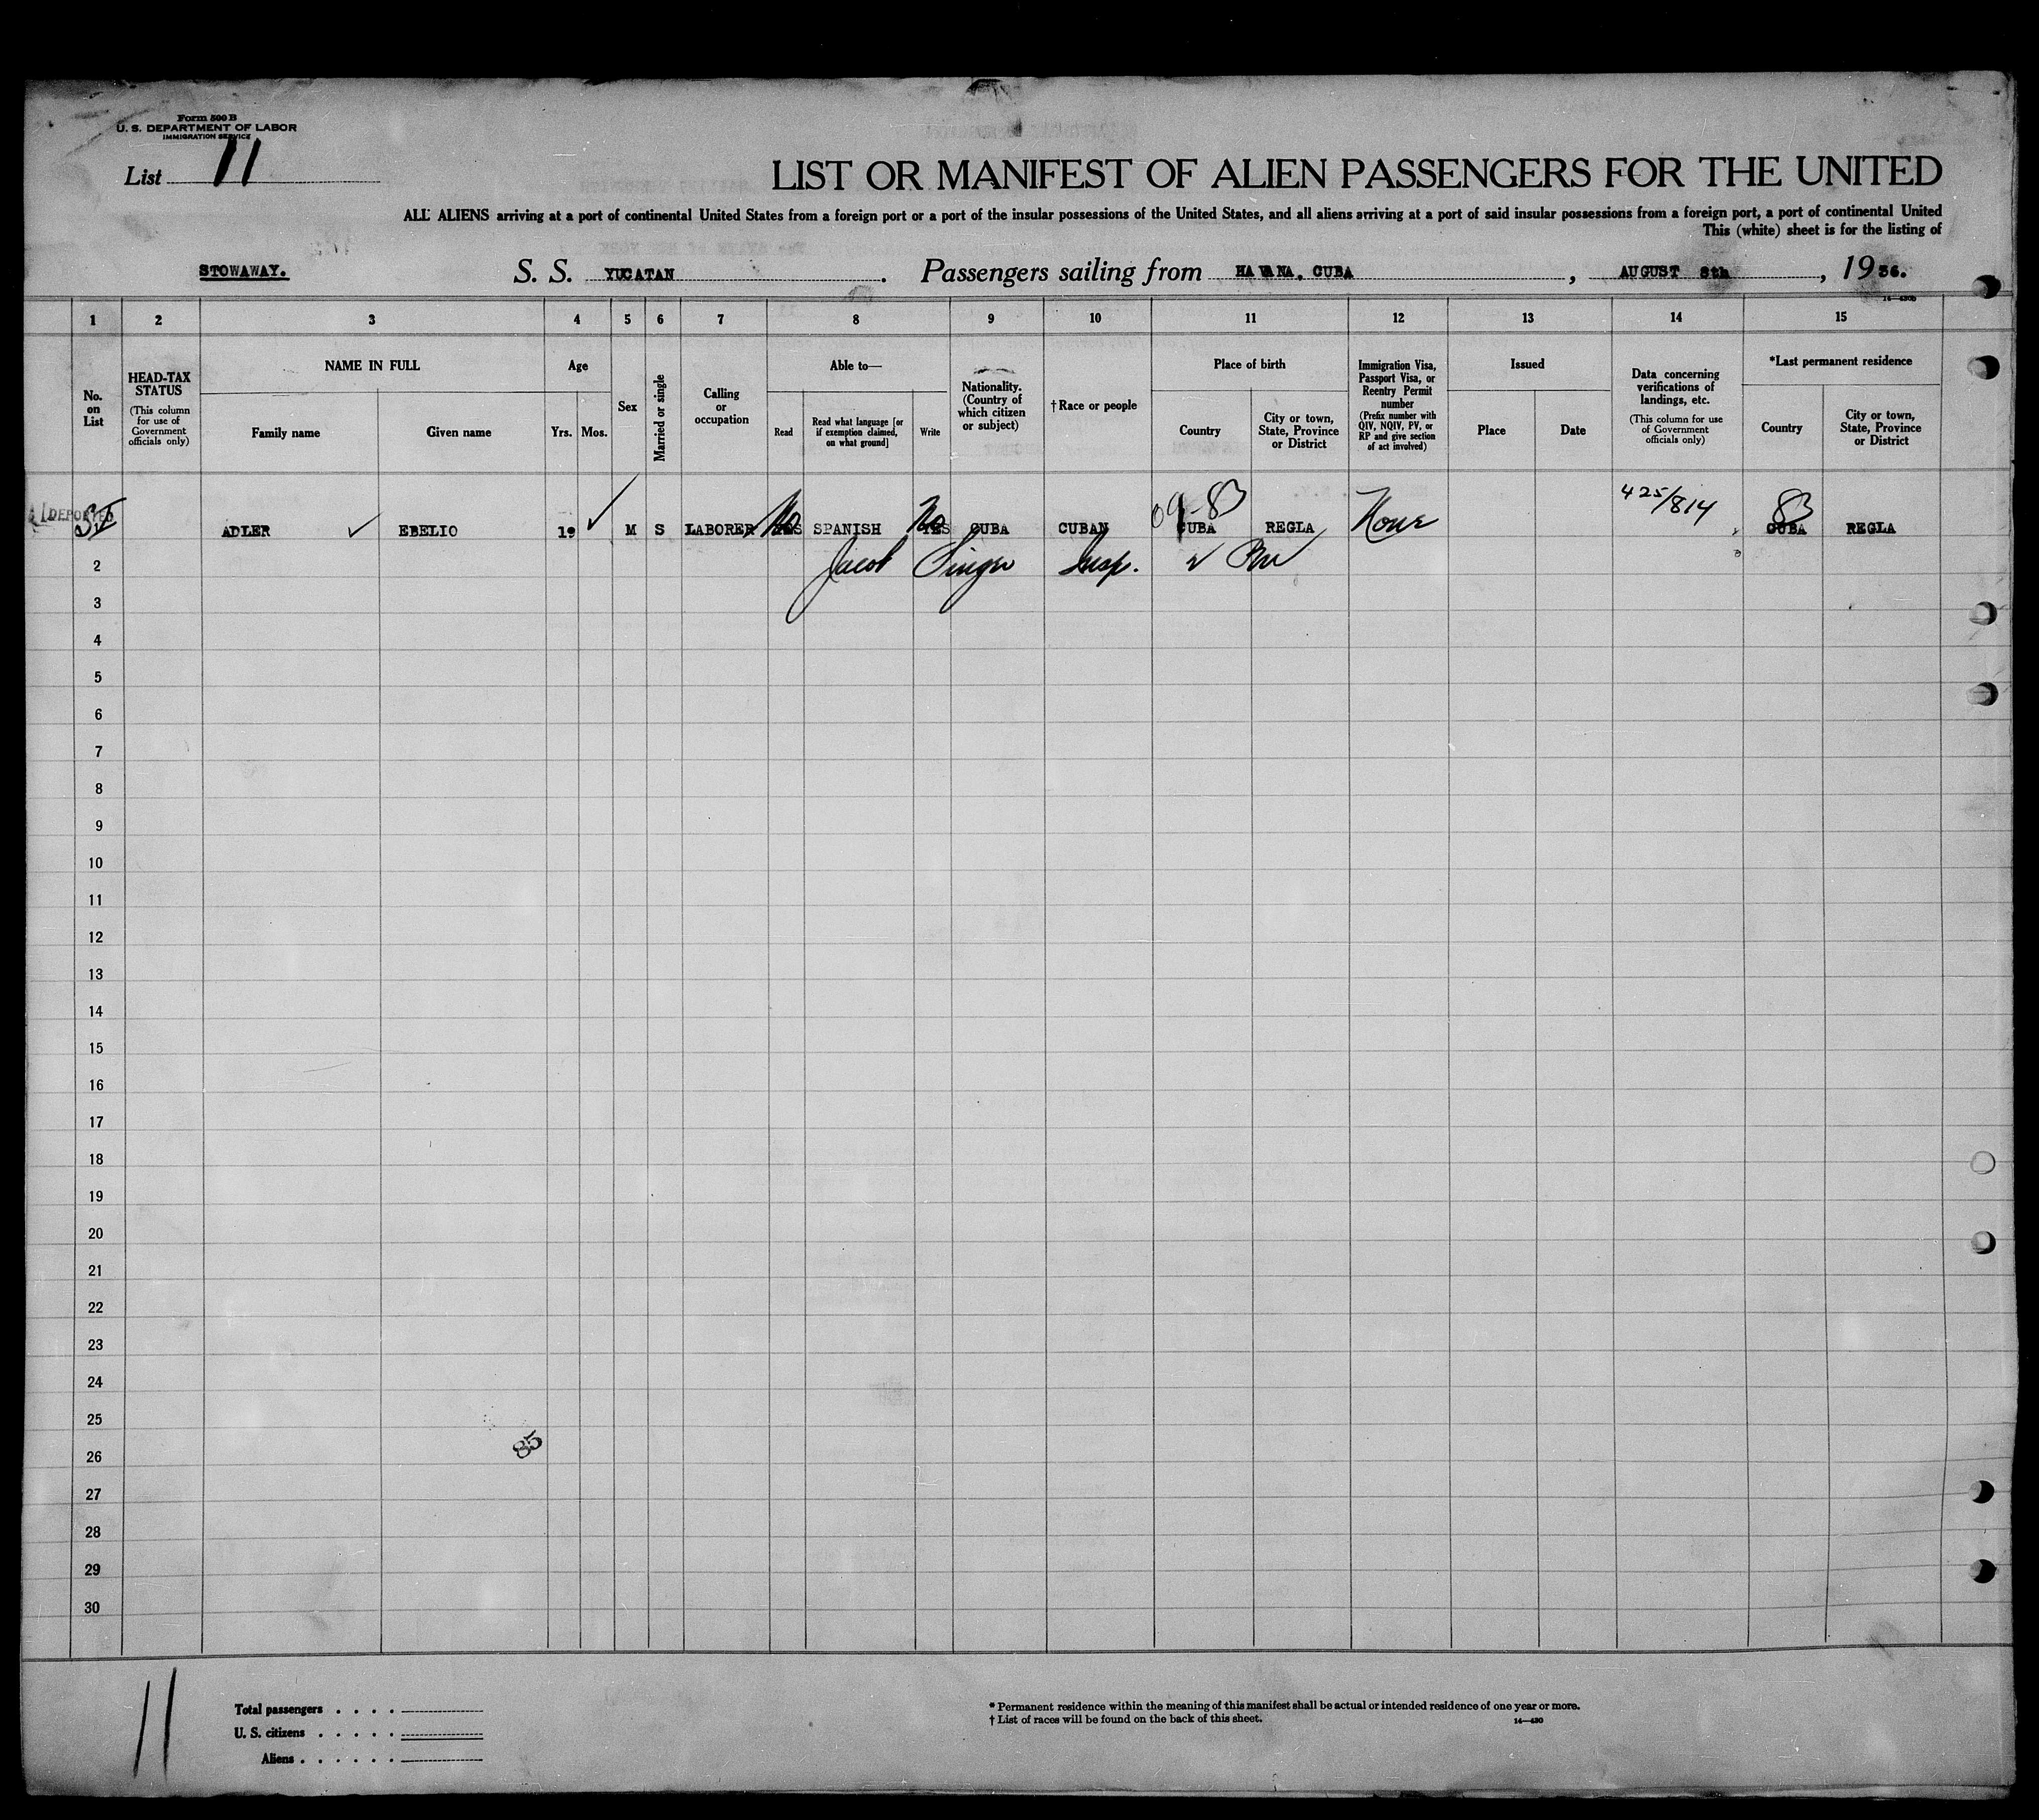 Form 500 B
U. S. DEPARTMENT OF LABOR
IMMIGRATION SERVICE
List 11
LIST OR MANIFEST OF ALIEN PASSENGERS FOR THE UNITED
ALL ALIENS arriving at a port of continental United States from a foreign port or a port of the insular possessions of the United States, and all aliens arriving at a port of said insular possessions from a foreign port, a port of continental United
This (white) sheet is for the listing of
STOWAWAY. S. S. YUCATAN. Passengers sailing from HAVANA, CUBA, AUGUST 8th, 1936.
1 2 3 4 5 6 7 8 9 10 11 12 13 14 15
No. on List
HEAD-TAX STATUS (This column for use of Government officials only)
NAME IN FULL
Family name
Given name
Age
Yrs. Mos.
Sex
Married or single
Calling or occupation
Able to—
Read
Read what language [or if exemption claimed, on what ground]
Write
Nationality. (Country of which citizen or subject)
† Race or people
Place of birth
Country
City or town, State, Province or District
Immigration Visa, Passport Visa, or Reentry Permit number (Prefix number with QIV, NQIV, PV, or RP and give section of act involved)
Issued
Place
Date
Data concerning verifications of landings, etc. (This column for use of Government officials only)
*Last permanent residence
Country
City or town, State, Province or District
DEPORTED
09-83
425/814
83
ADLER EBELIO 19 M S LABORER YES No SPANISH YES No CUBA CUBAN CUBA REGLA None CUBA REGLA
2 Jacob Singer Insp.
3
4
5
6
7
8
9
10
11
12
13
14
15
16
17
18
19
20
21
22
23
24
25
85
26
27
28
29
30
11
Total passengers . . . .
U. S. citizens . . . . .
Aliens . . . . . .
* Permanent residence within the meaning of this manifest shall be actual or intended residence of one year or more.
† List of races will be found on the back of this sheet.
14—430